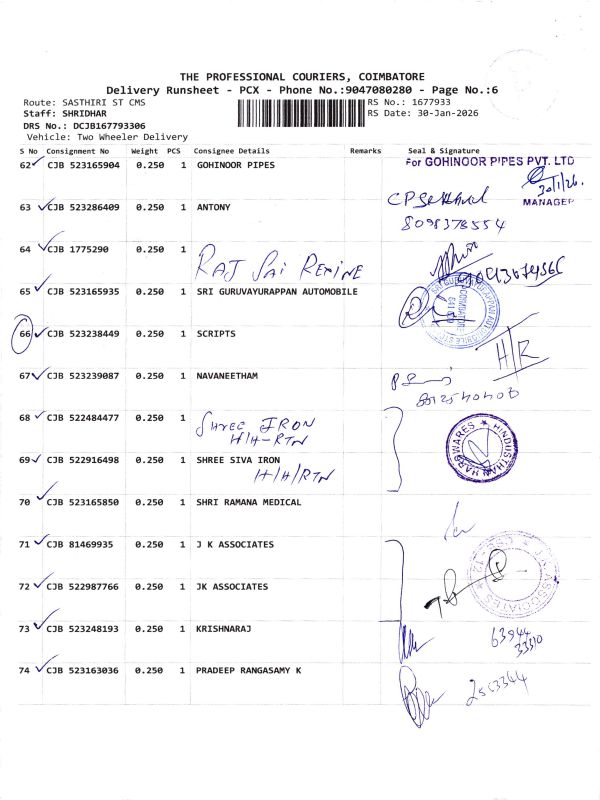 THE PROFESSIONAL COURIERS, COIMBATORE
Delivery Runsheet - PCX - Phone No.:9047080280 - Page No.:6
Route: SASTHIRI ST CMS
RS No.: 1677933
Staff: SHRIDHAR
RS Date: 30-Jan-2026
DRS No.: DCJB167793306
Vehicle: Two Wheeler Delivery
S No Consignment No Weight PCS Consignee Details Remarks Seal & Signature
62 CJB 523165904 0.250 1 GOHINOOR PIPES For GOHINOOR PIPES PVT. LTD
30/1/26.
MANAGER
63 CJB 523286409 0.250 1 ANTONY
8098378554
64 CJB 1775290 0.250 1 RAJ SAI REXINE
65 CJB 523165935 0.250 1 SRI GURUVAYURAPPAN AUTOMOBILE
66 CJB 523238449 0.250 1 SCRIPTS H/R
67 CJB 523239087 0.250 1 NAVANEETHAM
68 CJB 522484477 0.250 1 SHREE IRON
H/H-RTN
HINDUSTHAN HARDWARES
69 CJB 522916498 0.250 1 SHREE SIVA IRON
H/H/RTN
70 CJB 523165850 0.250 1 SHRI RAMANA MEDICAL
71 CJB 81469935 0.250 1 J K ASSOCIATES
J.K. ASSOCIATES
72 CJB 522987766 0.250 1 JK ASSOCIATES
73 CJB 523248193 0.250 1 KRISHNARAJ 63944
33310
74 CJB 523163036 0.250 1 PRADEEP RANGASAMY K